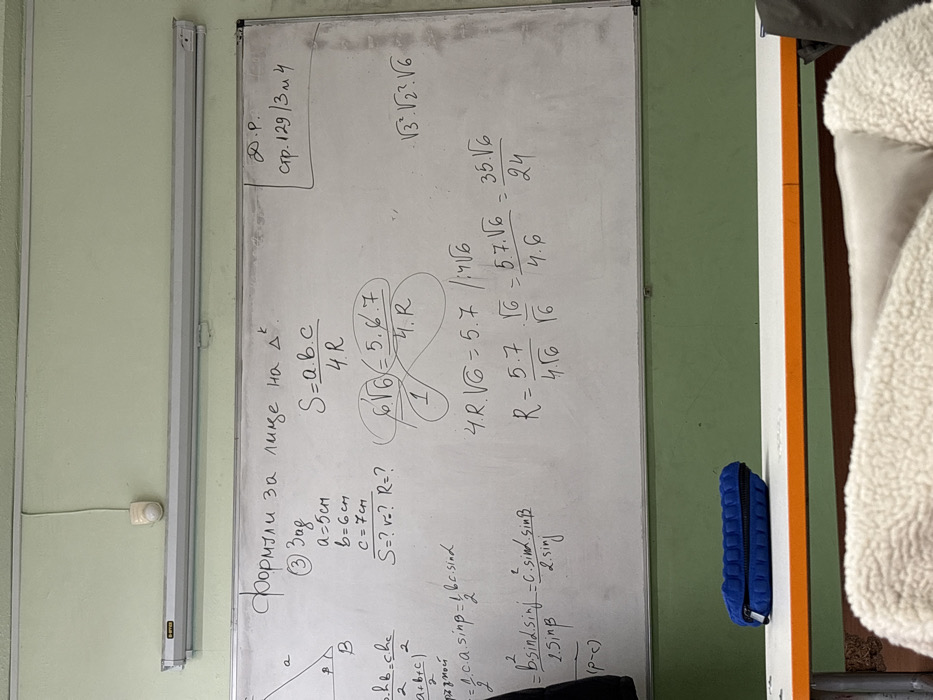 Формули за лице на Δᵏ
Д.Р.
стр. 129/3 и 4
③ Зад
a=5см
b=6см
c=7см
S=? r=? R=?
S = a.b.c / 4.R
6√6 / 1 = 5.6.7 / 4.R
4.R.√6 = 5.7 /:4√6
R = 5.7 / 4√6 . √6 / √6 = 5.7.√6 / 4.6 = 35.√6 / 24
√3².√2².√6
a
B
β
b.hb / 2 = c.hc / 2
a+b+c / 2
= 1/2 c.a.sinβ = 1/2 b.c.sinα
= b² sinα.sinγ / 2.sinβ = c².sinα.sinβ / 2.sinγ
(p-c)